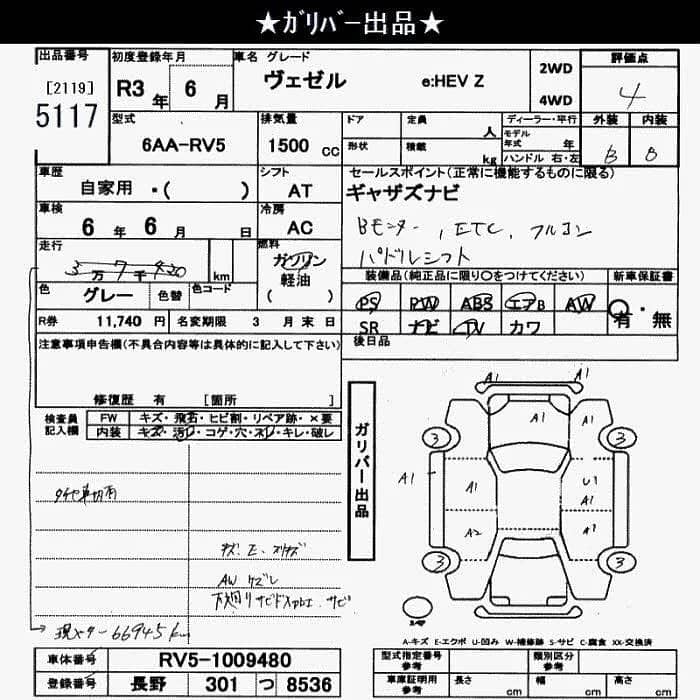 ★ｶﾞﾘﾊﾞｰ出品★
出品番号
[2119]
5117
初度登録年月
R3 年 6 月
車名 グレード
ヴェゼル e:HEV Z
2WD
4WD
評価点
4
型式
6AA-RV5
排気量
1500 cc
ドア
形状
定員
人
積載
kg
ディーラー・平行
モデル
年式 年
ハンドル 右・左
外装
B
内装
B
車歴
自家用 ・( )
シフト
AT
セールスポイント(正常に機能するものに限る)
ギャザズナビ
Bモニター, ETC, フルコン
パドルシフト
車検
6 年 6 月 日
冷房
AC
走行
3万7千420 km
燃料
ガソリン
軽油
( )
色
グレー
色替
色コード
装備品(純正品に限り○をつけてください)
PS PW ABS エアB AW
SR ナビ TV カワ
新車保証書
有・無
R券 11,740 円
名変期限 3 月 末 日
後日品
注意事項申告欄(不具合内容等は具体的に記入して下さい)
修復歴 有 [箇所 ]
検査員
記入欄
FW キズ・飛石・ヒビ割・リペア跡・×要
内装 キズ・汚レ・コゲ・穴・スレ・キレ・破レ
AW ケズレ
現メター66945km
ガリバー出品
A1
A1
A1
A1
3
3
A1
A1
U1
A1
A2
A1
3
3
A-キズ E-エクボ U-凹み W-補修跡 S-サビ C-腐食 XX-交換済
車体番号 RV5-1009480
登録番号 長野 301 つ 8536
型式指定番号
参考
類別区分
参考
車庫証明用
参考
長さ cm
幅 cm
高さ cm